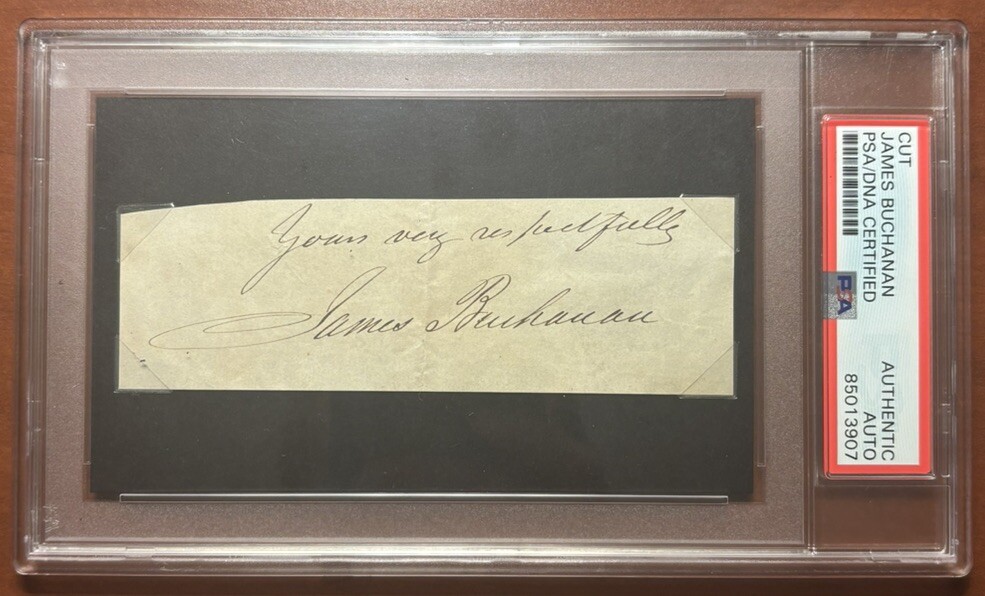 Yours very respectfully
James Buchanan
CUT
JAMES BUCHANAN
PSA/DNA CERTIFIED
PSA
AUTHENTIC
AUTO
85013907